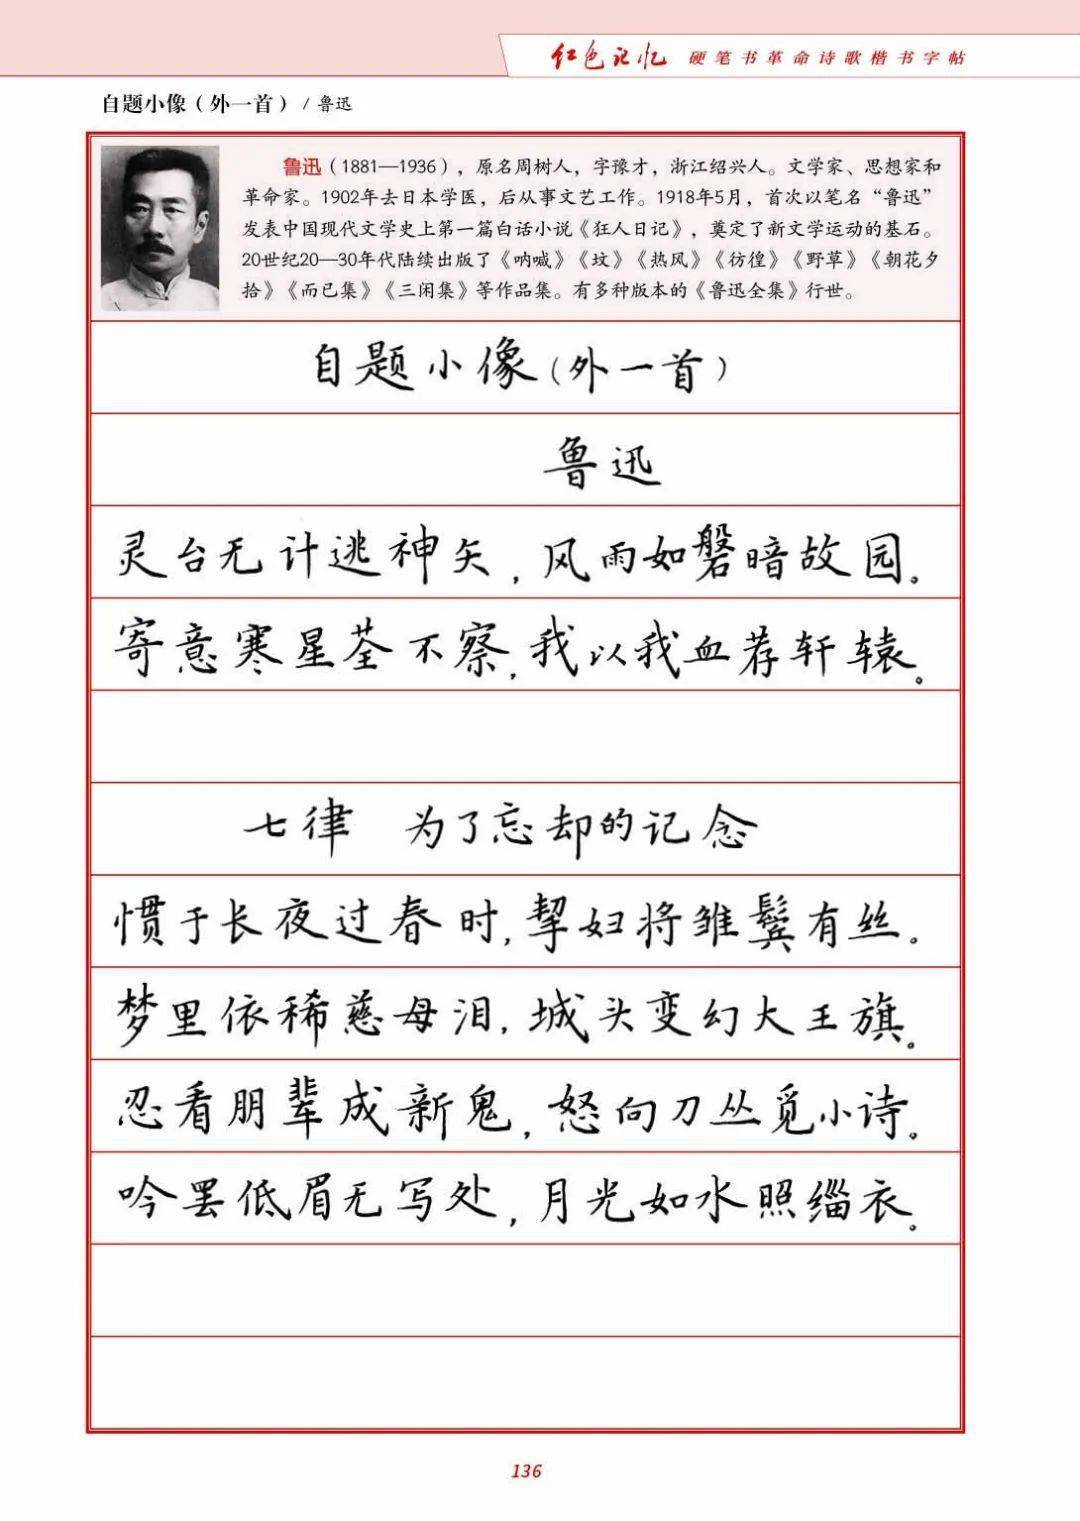 红色记忆 硬笔书革命诗歌楷书字帖
自题小像（外一首） / 鲁迅
鲁迅（1881—1936），原名周树人，字豫才，浙江绍兴人。文学家、思想家和
革命家。1902年去日本学医，后从事文艺工作。1918年5月，首次以笔名“鲁迅”
发表中国现代文学史上第一篇白话小说《狂人日记》，奠定了新文学运动的基石。
20世纪20—30年代陆续出版了《呐喊》《坟》《热风》《彷徨》《野草》《朝花夕
拾》《而已集》《三闲集》等作品集。有多种版本的《鲁迅全集》行世。
自题小像（外一首）
鲁迅
灵台无计逃神矢，风雨如磐暗故园。
寄意寒星荃不察，我以我血荐轩辕。
七律 为了忘却的记念
惯于长夜过春时，挈妇将雏鬓有丝。
梦里依稀慈母泪，城头变幻大王旗。
忍看朋辈成新鬼，怒向刀丛觅小诗。
吟罢低眉无写处，月光如水照缁衣。
136